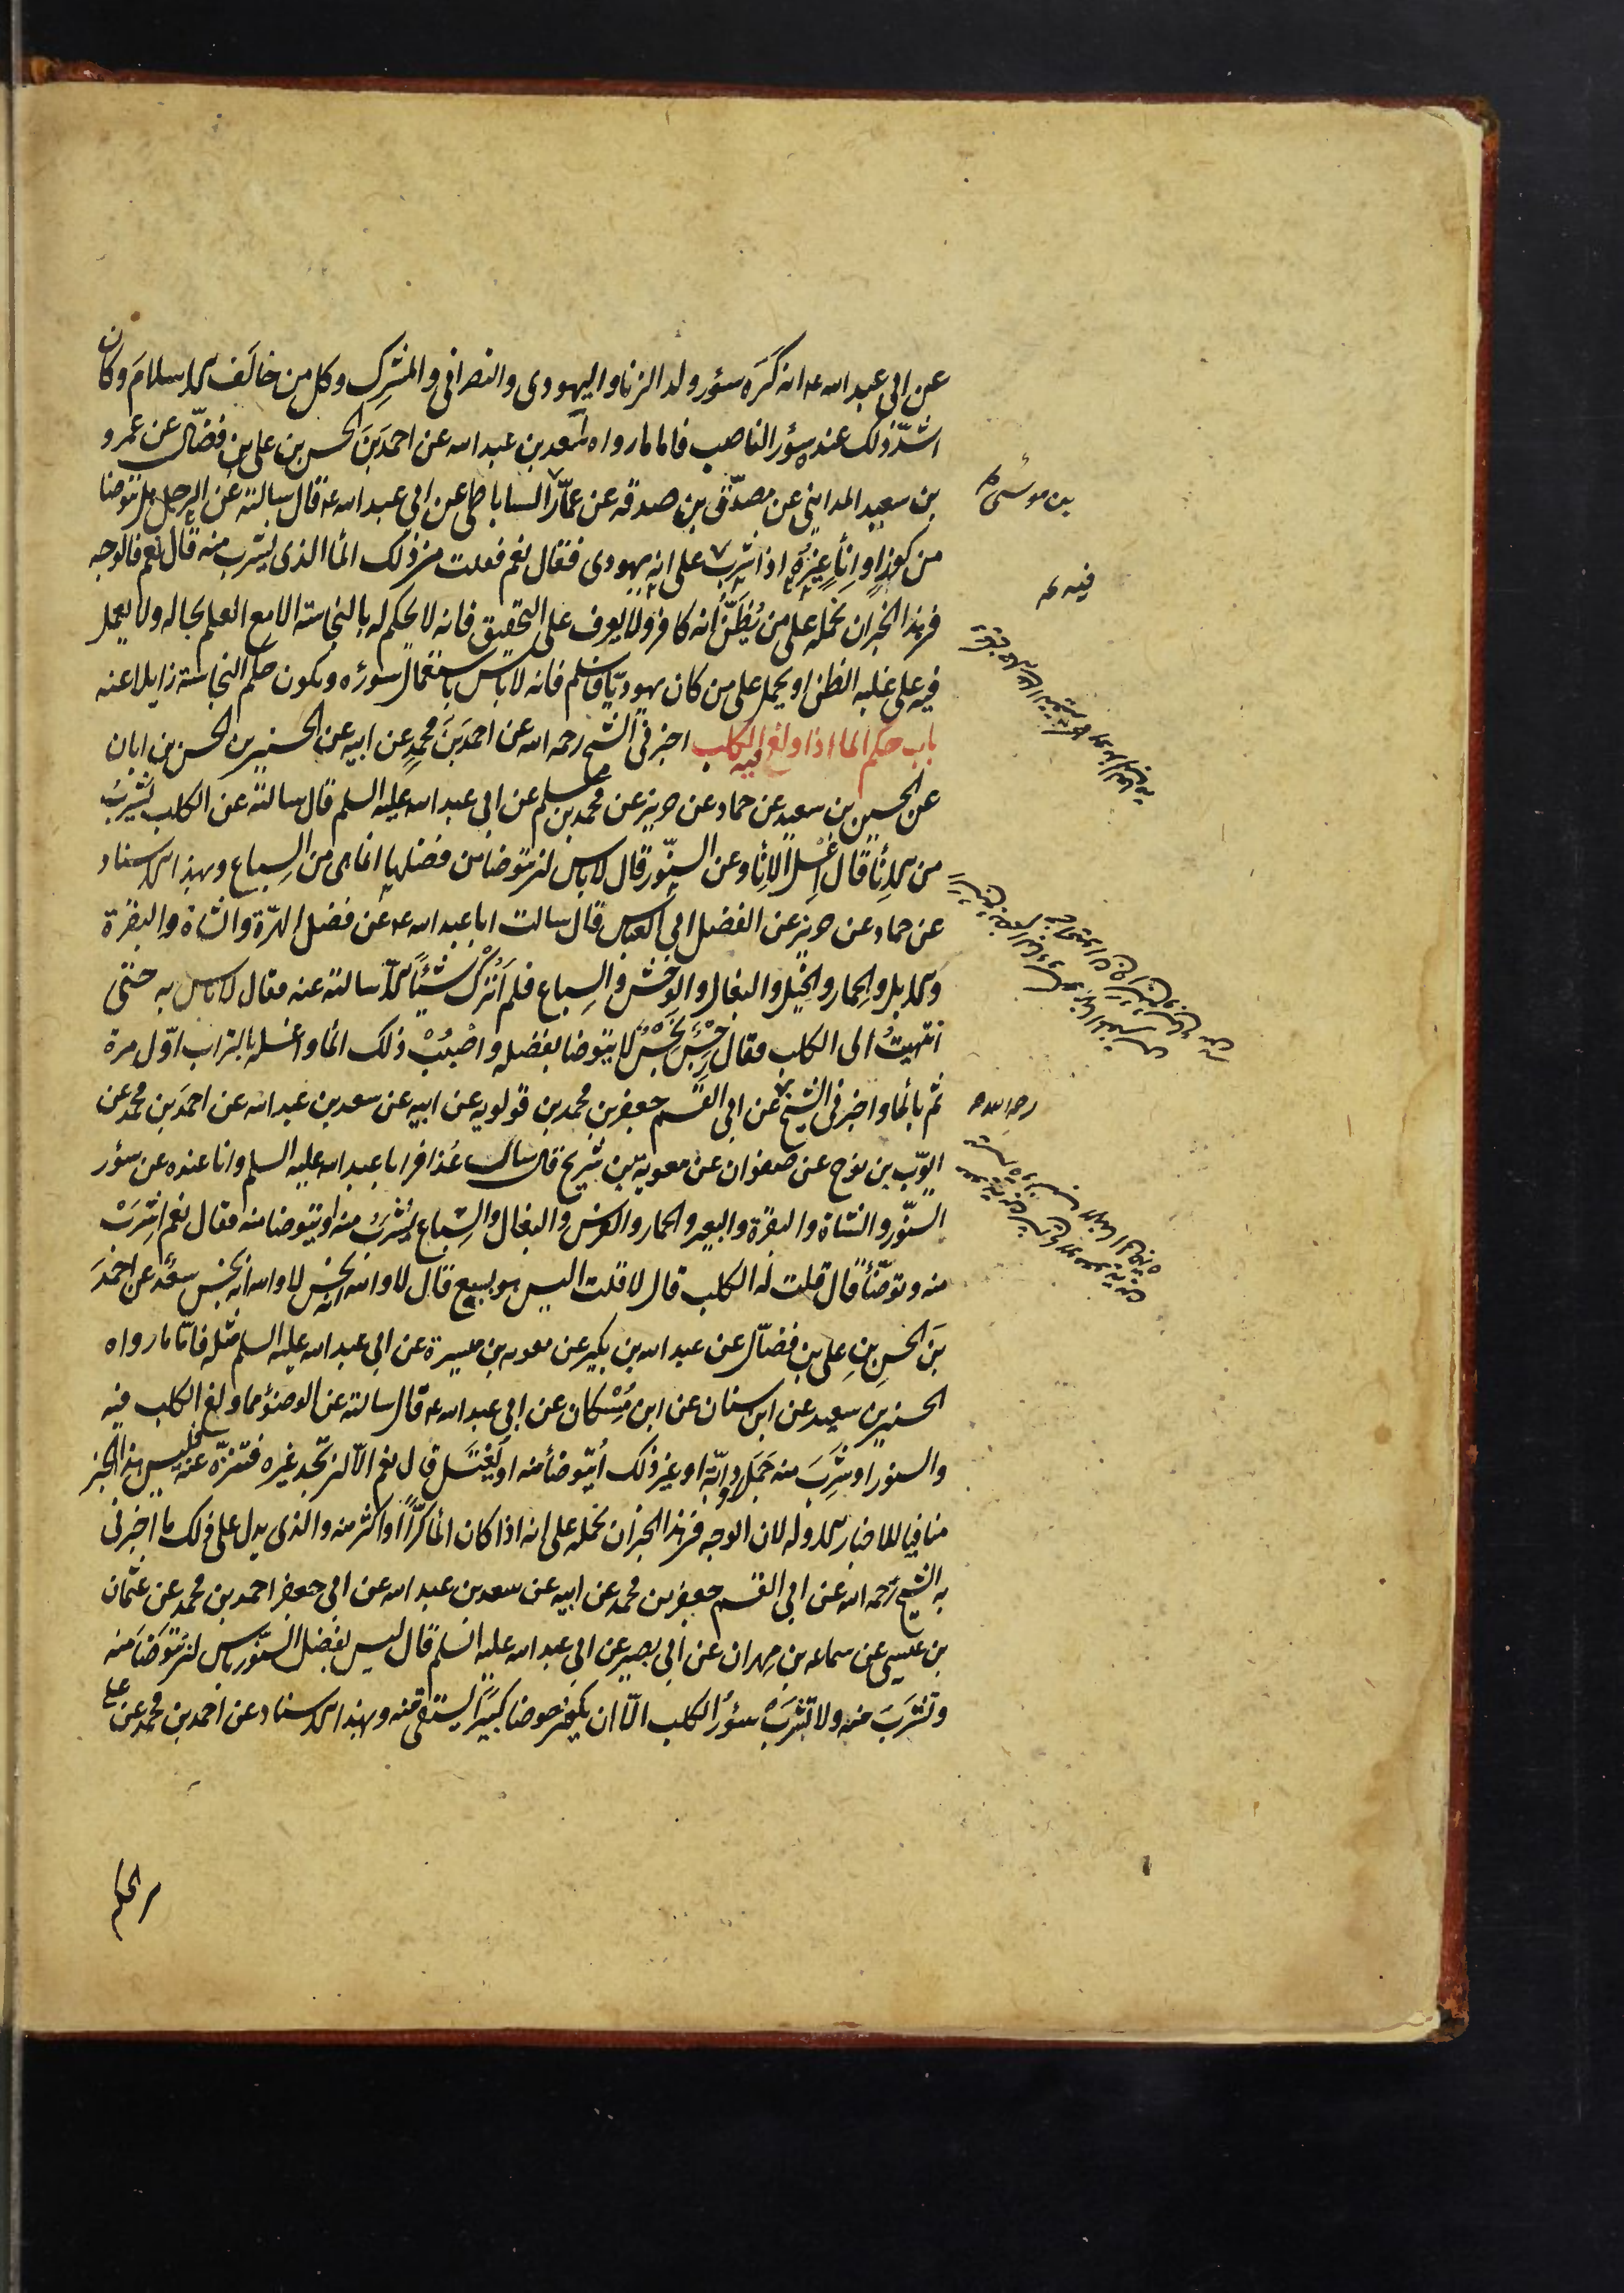 عن ابى عبد الله ع انه كَرَه سؤر ولد الزنا واليهودى والنصرانى والمشرِك وكل من خالَف الاسلامَ وكان
اشدّ ذلك عنده سؤر الناصب فاما ما رواه سعد بن عبد الله عن احمدَ بنَ الحسن بن على بن فضّال عن عمرو
بن سعيد المداينى عن مصدّق بن صدقه عن عمّار الساباطى عن ابى عبد الله ع قال سالته عن الرجل هل يتوضا
من كوزٍ او اناءٍ غيرِهِ اذا شرب على انه يهودى فقال نعم فقلت من ذلك الماء الذى يشرب منه قال نعم فالوجه
فى هذا الخبر ان نحمله على من يُظَنّ انه كافر ولا يعرف على التحقيق فانه لا يحكم له بالنجاسة الا مع العلم بحاله ولا يعمل
فيه على غلبه الظن او يحمل على من كان يهوديّا فاسلم فانه لا باس باستعمال سؤره ويكون حكم النجاسة زايلا عنه
باب حكم الماء اذا ولغ فيه الكلب اخبرنى الشيخ رحمه الله عن احمدَ بنَ محمدٍ عن ابيه عن الحسين بن الحسن بن ابان
عن الحسين بن سعيد عن حماد عن حريز عن محمد بن مسلم عن ابى عبد الله عليه السلم قال سالته عن الكلب يَشْرَبُ
من الاناء قال اِغْسِل الاِناء وعن السنّور قال لا باس ان يتوضا من فضلها انما هى من السِباع وبهذا الاسناد
عن حماد عن حريز عن الفضل ابى العباس قال سالت ابا عبد الله ع عن فضل الهرّة والشاة والبقرة
والابل والحمار والخيل والبغال والوحْش والسِباع فلم اَتْرُك شيئًا الا سالته عنه فقال لا باس به حتّى
انتهيتُ الى الكلب فقال رِجْسٌ نِجْسٌ لا يتوضا بفضله واصْبُبْ ذلك الماء واغسله بالتراب اوّل مرة
ثم بالماء واخبرنى الشيخ عن ابى القسم جعفر بن محمد بن قولويه عن ابيه عن سعد بن عبد الله عن احمدَ بن محمد عن
ايوّب بن نوح عن صفوان عن معوية بن شريح قال سال عُذافر ابا عبد الله عليه السلم وانا عنده عن سؤر
السنّور والشاة والبقرة والبعير والحمار والفرس والبغال والسِباع يُشْرَبُ منه او يتوضا منه فقال نعم اشرَبْ
منه وتوضّأ قال قلت له الكلب قال لا قلت اليس هو بسبع قال لا والله انه نجس لا والله انه نجس سعْد عن احمدَ
بنَ الحسنِ بنِ على بن فضّال عن عبد الله بن بكير عن معويه بن ميسرة عن ابى عبد الله عليه السلم مثله فامّا ما رواه
الحسين بن سعيد عن ابن سنان عن ابن مُسْكان عن ابى عبد الله ع قال سالته عن الوضوء مما ولغ الكلب فيه
والسنور او شَرِبَ منه جَمَل او دابّة او غير ذلك اُيتوضأ منه او يَغتسل قال نعم الّا ان تجد غيره فتنزّه عنه فليس هذا الخبر
منافيا للاخبار الاوله لان الوجه فى هذا الخبر ان نحمله على انه اذا كان الماء كرًّا او اكثر منه والذى يدل على ذلك ما اخبرنى
به الشيخ رحمه الله عن ابى القسم جعفر بن محمد عن ابيه عن سعد بن عبد الله عن ابى جعفر احمد بن محمد عن عثمان
بن عيسى عن سماعه بن مهران عن ابى بصير عن ابى عبد الله عليه السلم قال ليس بفضل السنّور باس ان يتوضّا منه
وتَشْرَبَ منه ولا تَشْرَبْ سؤرَ الكلب الّا ان يكون حوضا كبيرًا يستقى منه وبهذا الاسناد عن احمد بن محمد عن على
بن موسى
فيه
رحمه الله
بن الحكم